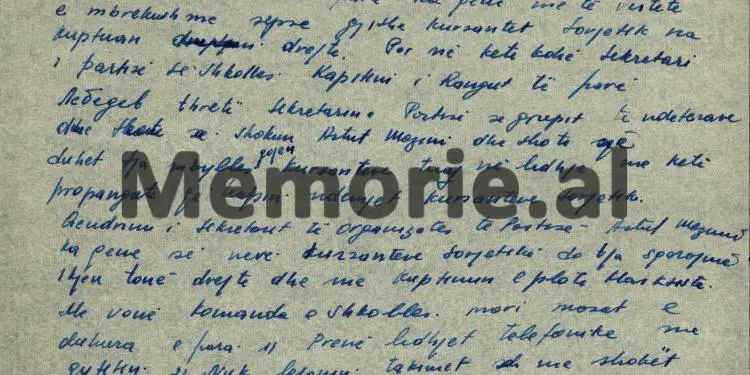 ka qenë me të vërtetë
e mbrekullushme sepse gjithë kursantët Sovjetik na
kuptuan drejtë. Por në këtë kohë Sekretari
i partisë së Shkollës Kapiteni i Rangut të parë
Лебедев thretë sekretarin e Partisë se grupit të
dhe thotë se shokun Astrit Mezini dhe thotë që
duhet t'ja mbyllës gojën kursantëve tuaj në lidhje me këtë
propagatë që hapni ndërmjet kursantëve Sovjetik.
Qendrimi i sekretarit të Organizatës të Partisë Astrit Mezinit
ka qenë se neve kursantëve Sovjetikë do t'ja sqarojmë
tonë drejtë dhe me kuptimin e plotë Marksist.
Me vonë komanda e Shkollës. mori masat e
duhura e para. 1) Prenë lidhjet telefonike me
2) Nuk takimet me shokët
Memorie.al